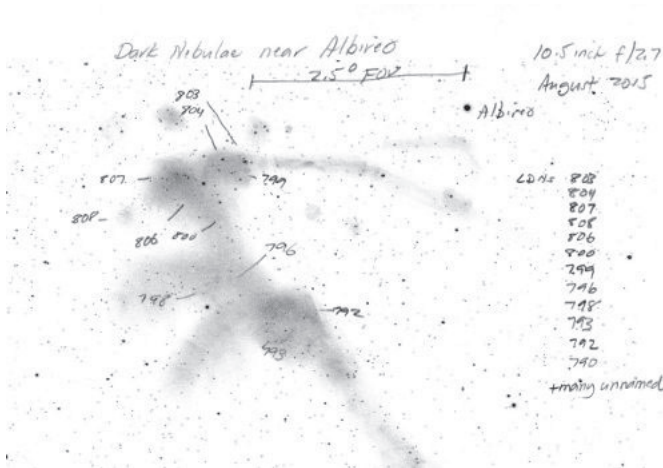 Dark Nebulae near Albireo
10.5 inch f/2.7
2.5° FOV
August 2015
803
804
Albireo
807
799
808
806
800
796
798
792
793
LDNs 803
804
807
808
806
800
799
796
798
793
792
790
+many unnamed